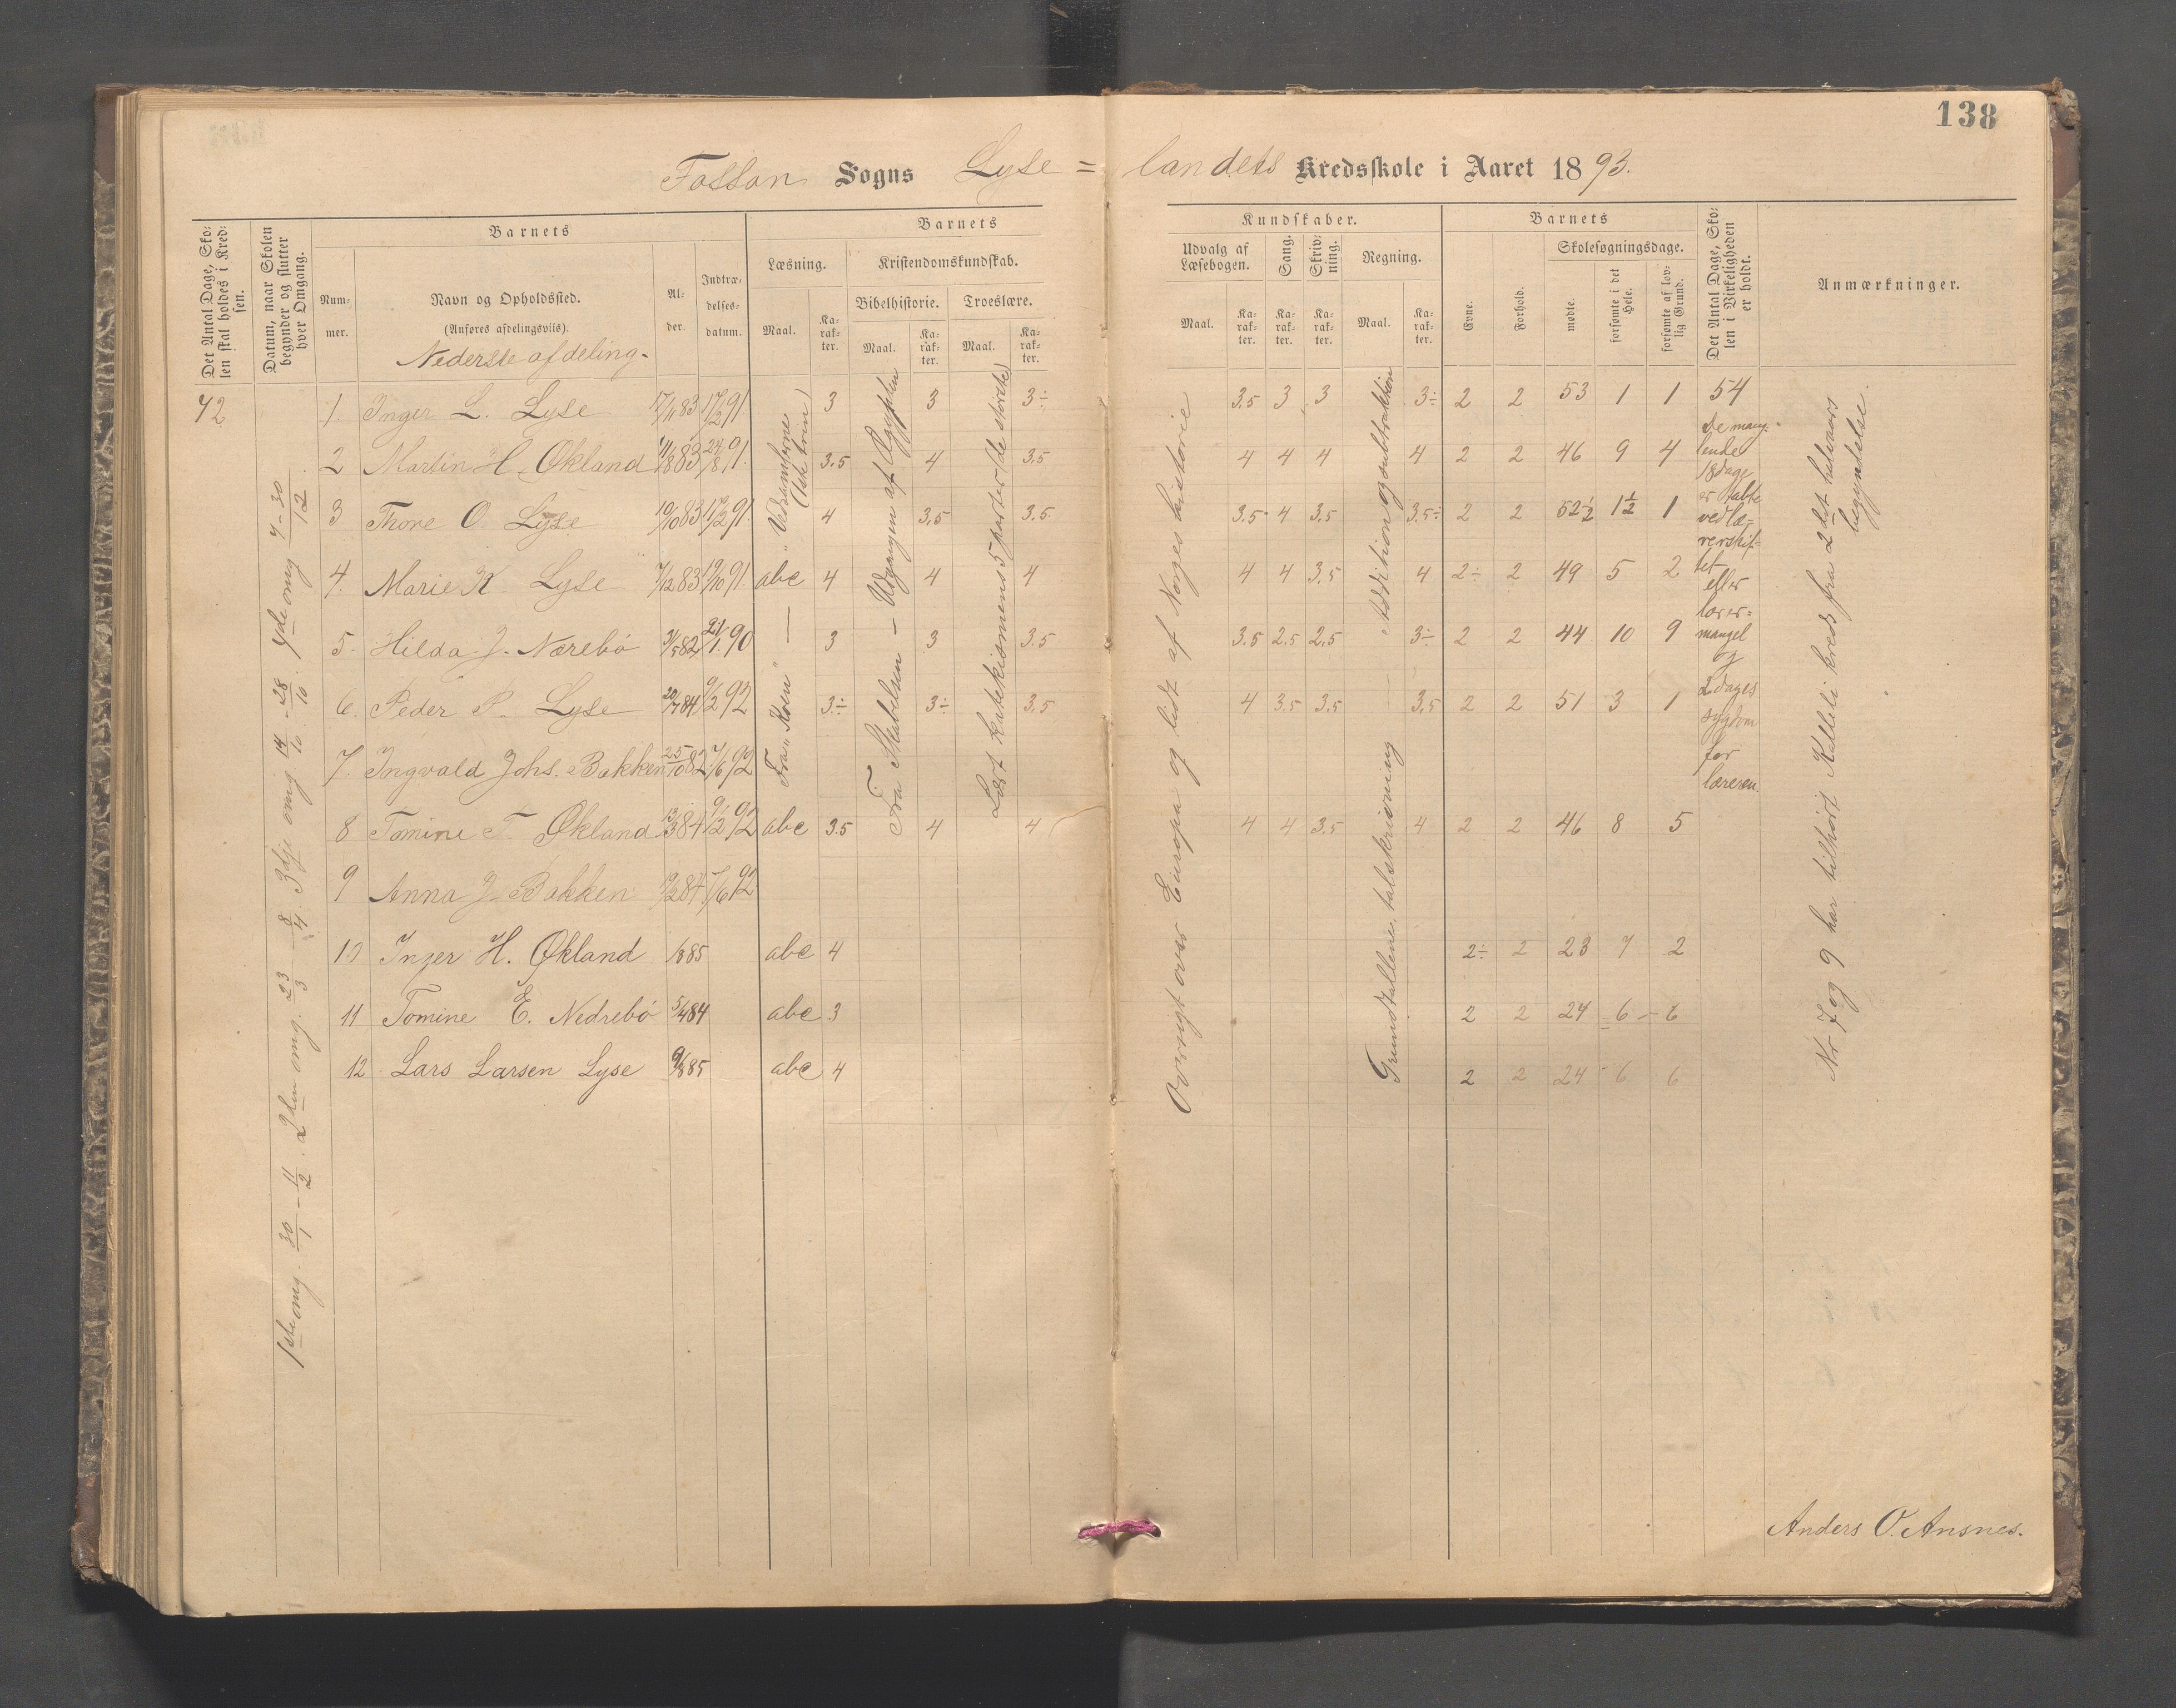 138
Fossan Sogns Lyse = landets Kredsskole i Aaret 1893.
Det Antal Dage, Skolen skal holdes i Kredsen.
Datum, naar Skolen begynder og slutter hver Omgang.
Barnets
Nummer.
Navn og Opholdssted.
(Anføres afdelingsviis).
Nederste afdeling.
Alder.
Indtrædelsesdatum.
Barnets
Læsning.
Maal.
Karakter.
Kristendomskundskab.
Bibelhistorie.
Maal.
Karakter.
Troeslære.
Maal.
Karakter.
Kundskaber.
Udvalg af Læsebogen.
Maal.
Karakter.
Sang.
Karakter.
Skrivning.
Karakter.
Regning.
Maal.
Karakter.
Barnets
Evne.
Forhold.
Skolesøgningsdage.
mødte.
forsømte i det Hele.
forsømte af lovlig Grund.
Det Antal Dage, Skolen i Virkeligheden er holdt.
Anmærkninger.
72
1ste omg. 30/1 - 11/2. 2den omg. 23/3 - 8/4. 3dje omg. 14/10 - 28/10. 4de omg 7 - 30/12.
1. Inger L. Lyse 17/11 83 17/2 91. 3 3 3÷ 3.5 3 3 3÷ 2 2 53 1 1 54
2 Martin H. Økland 11/8 83 24/8 91. 3.5 4 3.5 4 4 4 4 2 2 46 9 4
3 Thore O. Lyse 10/10 83 17/2 91. 4 3.5 3.5 3.5 4 3.5 3.5÷ 2 2 52½ 1½ 1
4. Marie K. Lyse 7/12 83 19/10 91 abc 4 4 4 4 4 3.5 4 2÷ 2 49 5 2
5. Hilda J. Nærebø 31/5 82 21/1. 90 3 3 3.5 3.5 2.5 2.5 3÷ 2 2 44 10 9
6. Peder P. Lyse 20/7 84 9/2 92 3÷ 3÷ 3.5 4 3.5 3.5 3.5 2 2 51 3 1
7. Ingvald Johs. Bakken 25/10 82 7/6 92
8 Tomine T. Økland 13/3 84 9/2 92 abc 3.5 4 4 4 4 3.5 4 2 2 46 8 5
9 Anna J. Bakken 19/2 84 7/6 92
10 Inger H. Økland /8 85 abc 4 2÷ 2 23 7 2
11 Tomine E. Nedrebø 5/4 84 abc 3 2 2 24 6 6
12 Lars Larsen Lyse 9/8 85 abc 4 2 2 24 6 6
Fra „Koen" — „Vedsamlerne (1ste trin)
Fra Skabelsen – Udgangen af Ægypten
Lært katekismens 5 parter (de største)
Oversigt over Europa og lidt af Norges historie
Grundtallene, talskrivning – Addition og subtraktion
De manglende
18 dage
er tabte
ved lærerskiftet
eller
lærermangel
og
2 dages
sygdom
for
læreren.
Nr 7 og 9 har tilhørt Kalleli kreds fra 2det halvaars
begyndelse.
Anders O. Ansnes.